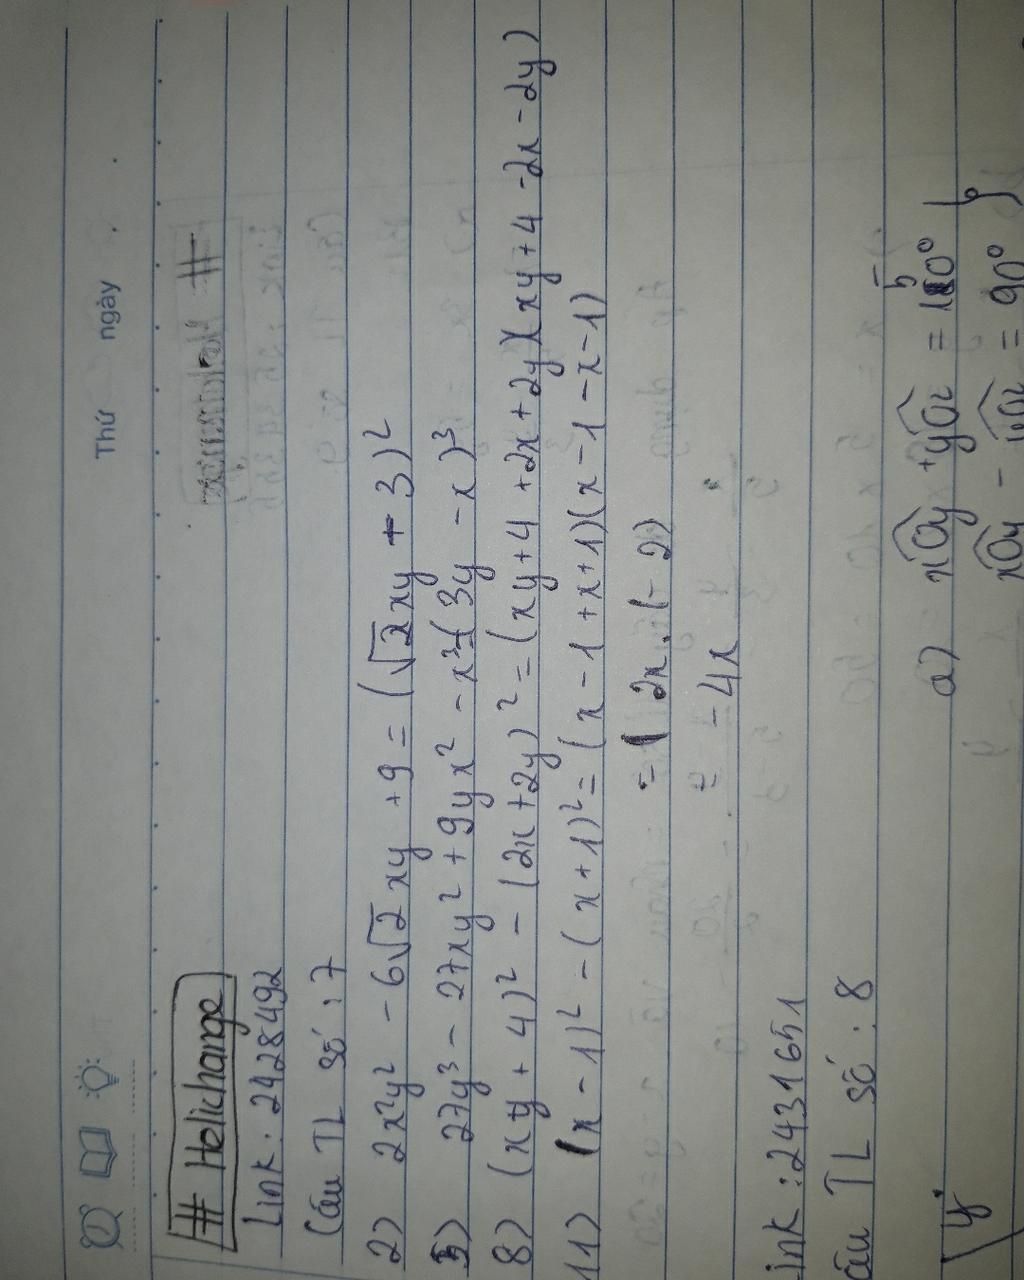 Thứ ngày
# Helichange
Link: 2428492
Câu TL số: 7
2) 2x²y² - 6√2xy + 9 = (√2xy + 3)²
5) 27y³ - 27xy² + 9yx² - x³ = (3y - x)³
8) (xy + 4)² - (2x + 2y)² = (xy + 4 + 2x + 2y)(xy + 4 - 2x - 2y)
11) (x - 1)² - (x + 1)² = (x - 1 + x + 1)(x - 1 - x - 1)
= 2x.(-2)
= -4x
ink: 2431651
âu TL số: 8
a) xOy + yOz = 150°
xOy - yOz = 90°
y